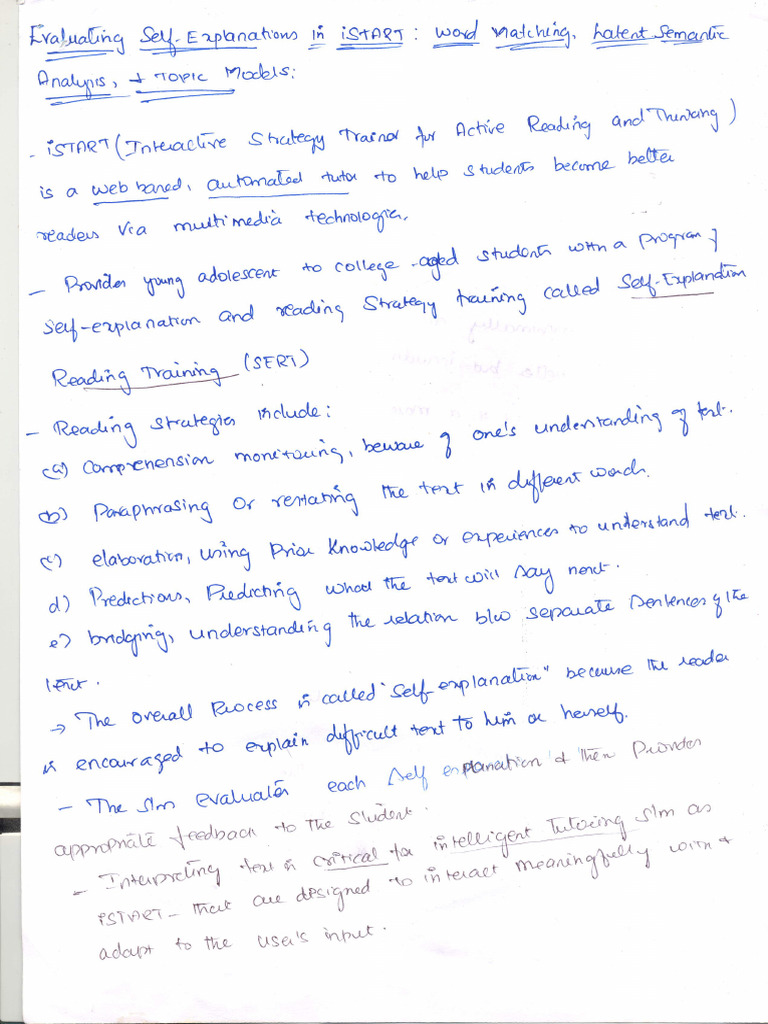 Evaluating Self-Explanations in iSTART: Word Matching, Latent Semantic
Analysis, + Topic Models:
- iSTART (Interactive Strategy Trainer for Active Reading and Thinking)
is a web based, automated tutor to help students become better
readers via multimedia technologies.
- Provides young adolescent to college-aged students with a program of
self-explanation and reading strategy training called Self-Explanation
Reading Training (SERT)
- Reading strategies include:
(a) Comprehension monitoring, beware of one's understanding of text.
(b) Paraphrasing or restating the text in different words.
(c) elaboration, using prior knowledge or experiences to understand text.
d) Predictions, Predicting what the text will say next.
e) bridging, understanding the relation b/w separate sentences of the
text.
→ The overall Process is called "Self-explanation" because the reader
is encouraged to explain difficult text to him or herself.
- The s/m evaluates each self explanation & then Provides
appropriate feedback to the student.
- Interpreting text is critical for intelligent Tutoring s/m as
iSTART - that are designed to interact meaningfully with &
adapt to the user's input.